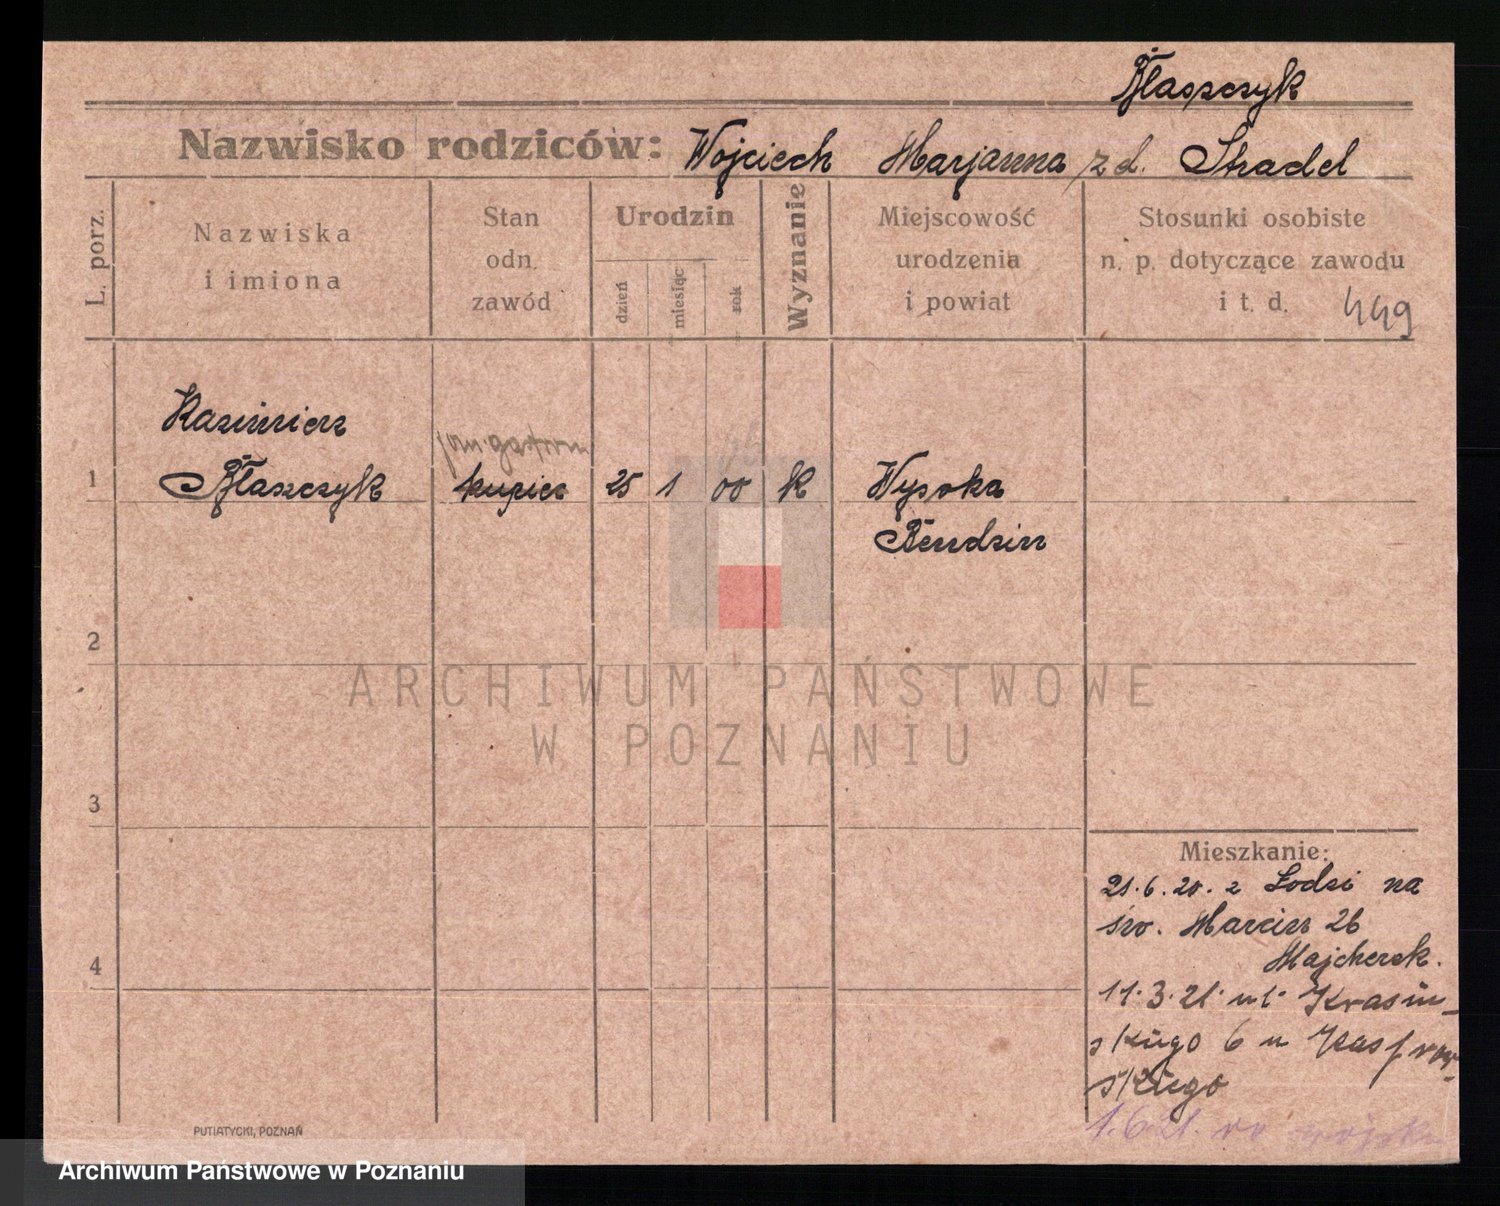 Błaszczyk
Nazwisko rodziców: Wojciech Marjanna z d. Stradel
L. porz.
Nazwiska
i imiona
Stan
odn.
zawód
Urodzin
dzień
miesiąc
rok
Wyznanie
Miejscowość
urodzenia
i powiat
Stosunki osobiste
n. p. dotyczące zawodu
i t. d. 449
Kazimierz
1 Błaszczyk kupiec 25 1 00 k Wysoka
Bendzin
2
ARCHIWUM PAŃSTWOWE
W POZNANIU
3
Mieszkanie:
21.6.20. z Łodzi na
św. Marcin 26
4 Majcherek.
11.3.21. ul. Krasiń-
skiego 6 u Kasprow-
skiego
1.6.21. do wojska
PUTIATYCKI, POZNAŃ
Archiwum Państwowe w Poznaniu